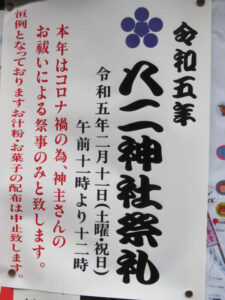 令和五年
八二神社祭礼
令和五年二月十一日(土曜・祝日)
午前十一時より十二時
本年はコロナ禍の為、神主さんの
お祓いによる祭事のみと致します。
恒例となっておりますお汁粉・お菓子の配布は中止致します。